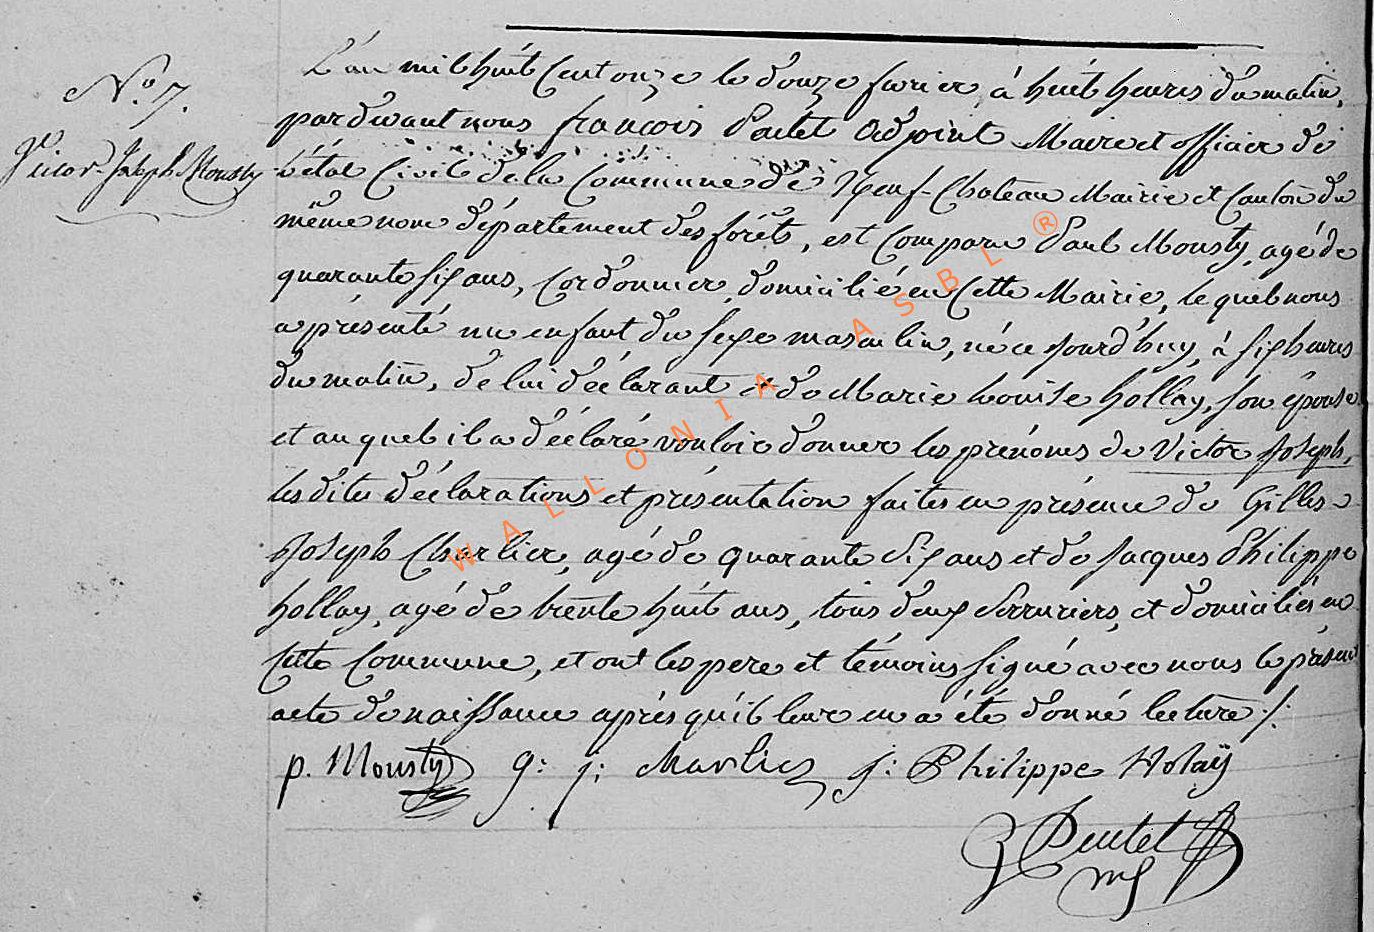 L'an mil huit Cent onze le douze fevrier, à huit heures du matin,
No. 7.
pardevant nous françois Poulet Adjoint Maire et officier de
Victor Joseph Mousty
l'état Civil de la Commune de Neuf-Chateau Mairie et Canton du
même nom département des forêts, est Comparu Paul Mousty, agé de
quarante six ans, Cordonnier, domicilié en Cette Mairie, lequel nous
a présenté un enfant du sexe masculin, né ce jourd'huy, à six heures
du matin, de lui déclarant et de Marie Louise hollay, son épouse
et auquel il a déclaré vouloir donner les prénoms de Victor Joseph,
lesdites déclarations et présentation faites en présence de Gilles
Joseph Charlier, agé de quarante six ans et de Jacques Philippe
hollay, agé de trente huit ans, tous deux Serruriers, et domiciliés en
Cette Commune, et ont les pere et témoins signé avec nous le présent
acte de naissance après qu'il leur en a été donné lecture ./.
p. Mousty g: j: Charlier j: Philippe Holaÿ
WALLONIA ASBL ®